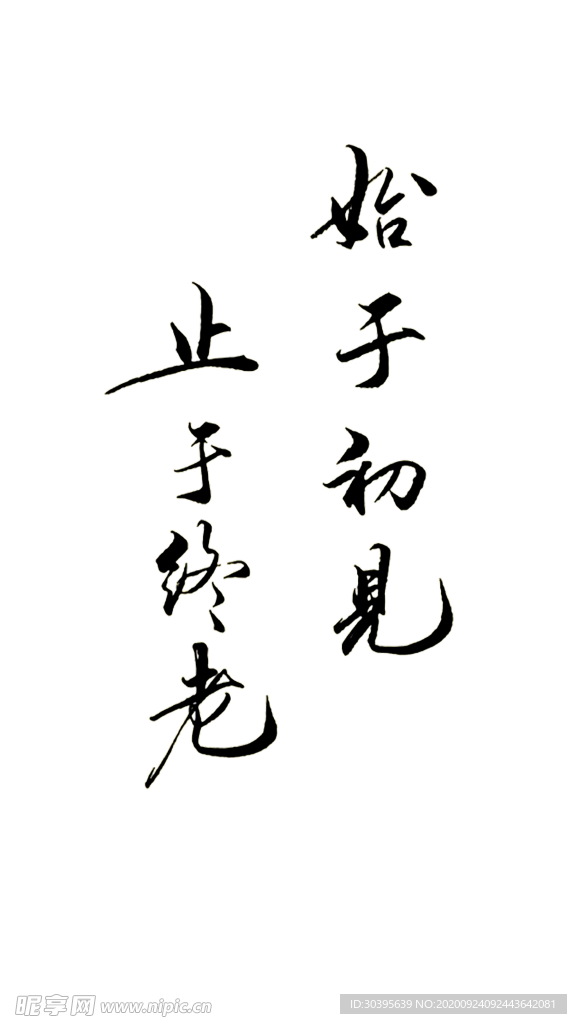 始于初見
止于终老
昵享网 www.nipic.cn
ID:30395639 NO:20200924092443642081